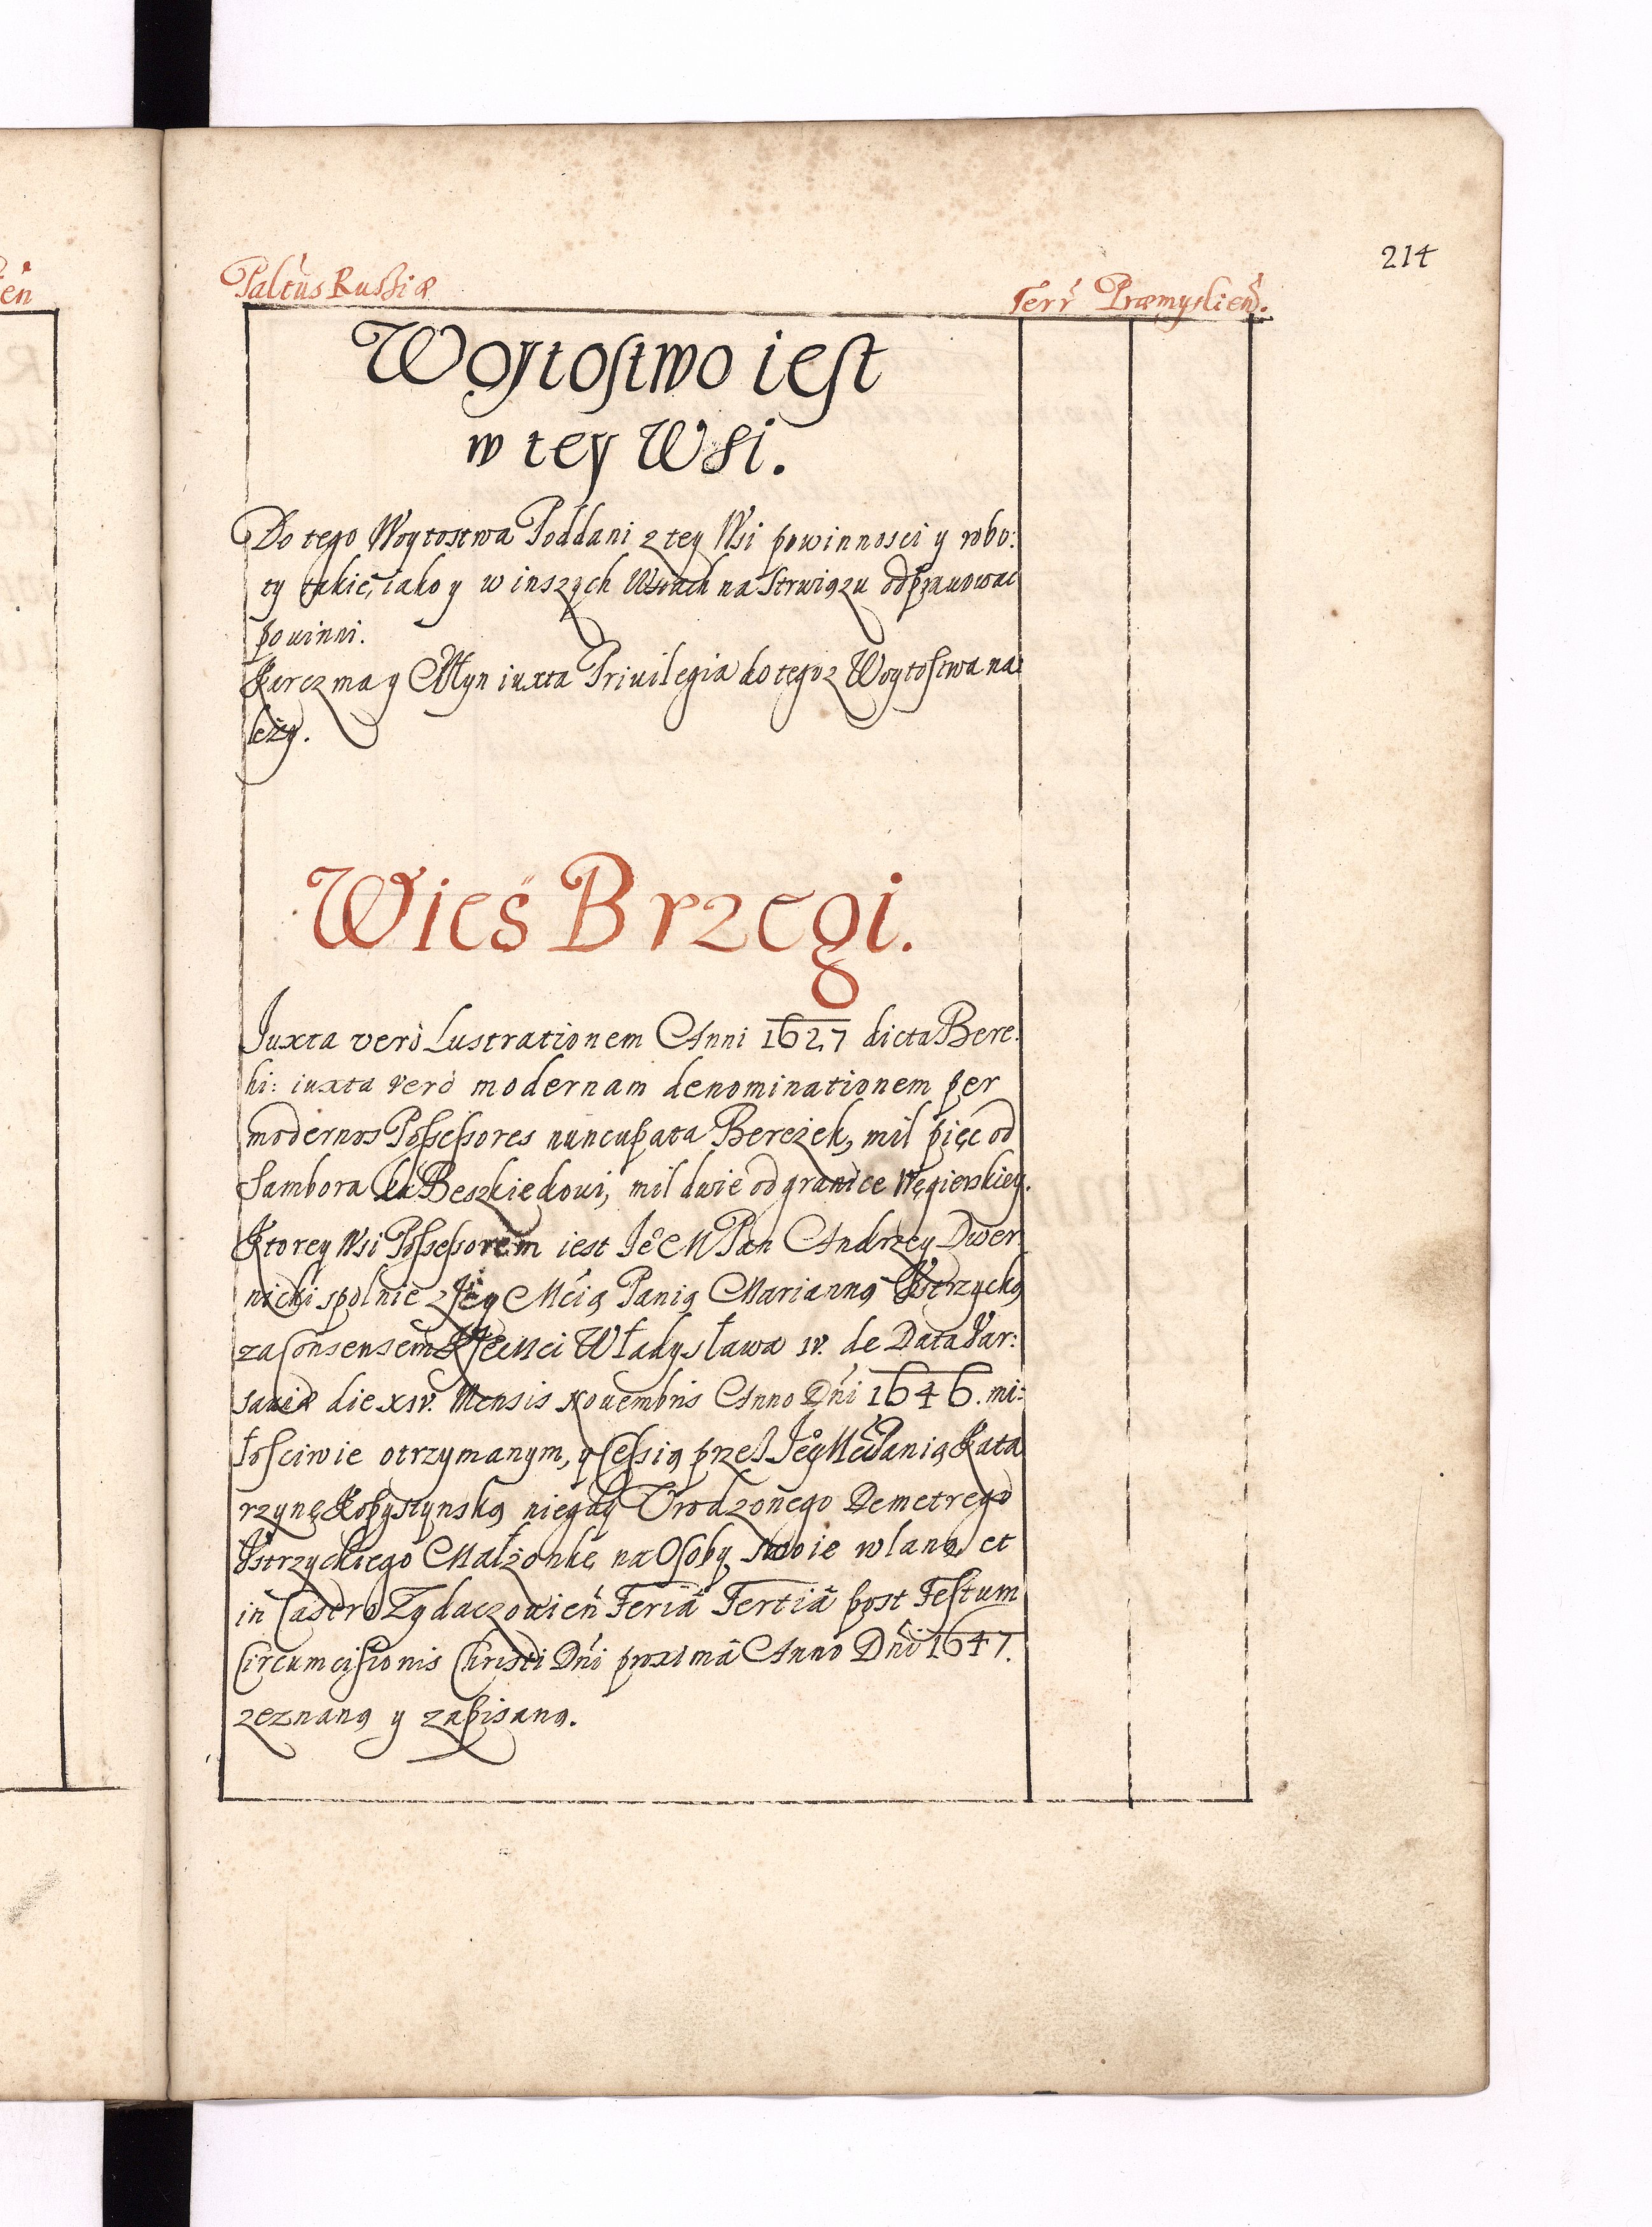 214
Paltus Russiæ Terr Præmyslien.
Woytostwo iest
w tey Wsi.
Do tego Woytostwa Poddani z tey Wsi powinnosci y robo:
ty takie, iako y w inszych Wsiach na Strwiązu odprawowac
powinni.
Karczma y Młyn iuxta Priuilegia do tegoz Woytostwa na:
leżą.
Wieś Brzegi.
Iuxta verò Lustrationem Anni 1627 dicta Bere:
hi: iuxta verò modernam denominationem per
modernos Possessores nuncupata Bereżek, mil pięc od
Sambora ku Beszkiedowi, mil dwie od granice Węgierskiey.
Ktorey Wsi Possessorem iest Ie M Pan Andrzey Dwer
nicki spolnie z Iey Mcią Panią Marianną Ustrzycką
za Consensem Władysława IV. de Data War:
sauiæ die XIV. Mensis Nouembris Anno Dni 1646. mi:
łosciwie otrzymanym, y Cessią przes Iey Mć Panią Kata
rzynę Kopystynską niegdy Urodzonego Demetrego
Ustrzyckiego Małżonkę na Osoby swoie wlaną et
in Castro Zydaczowień Feriâ Tertiâ post Festum
Circumcisionis Christi Dni proximâ Anno Dni 1647.
zeznaną y zapisaną.